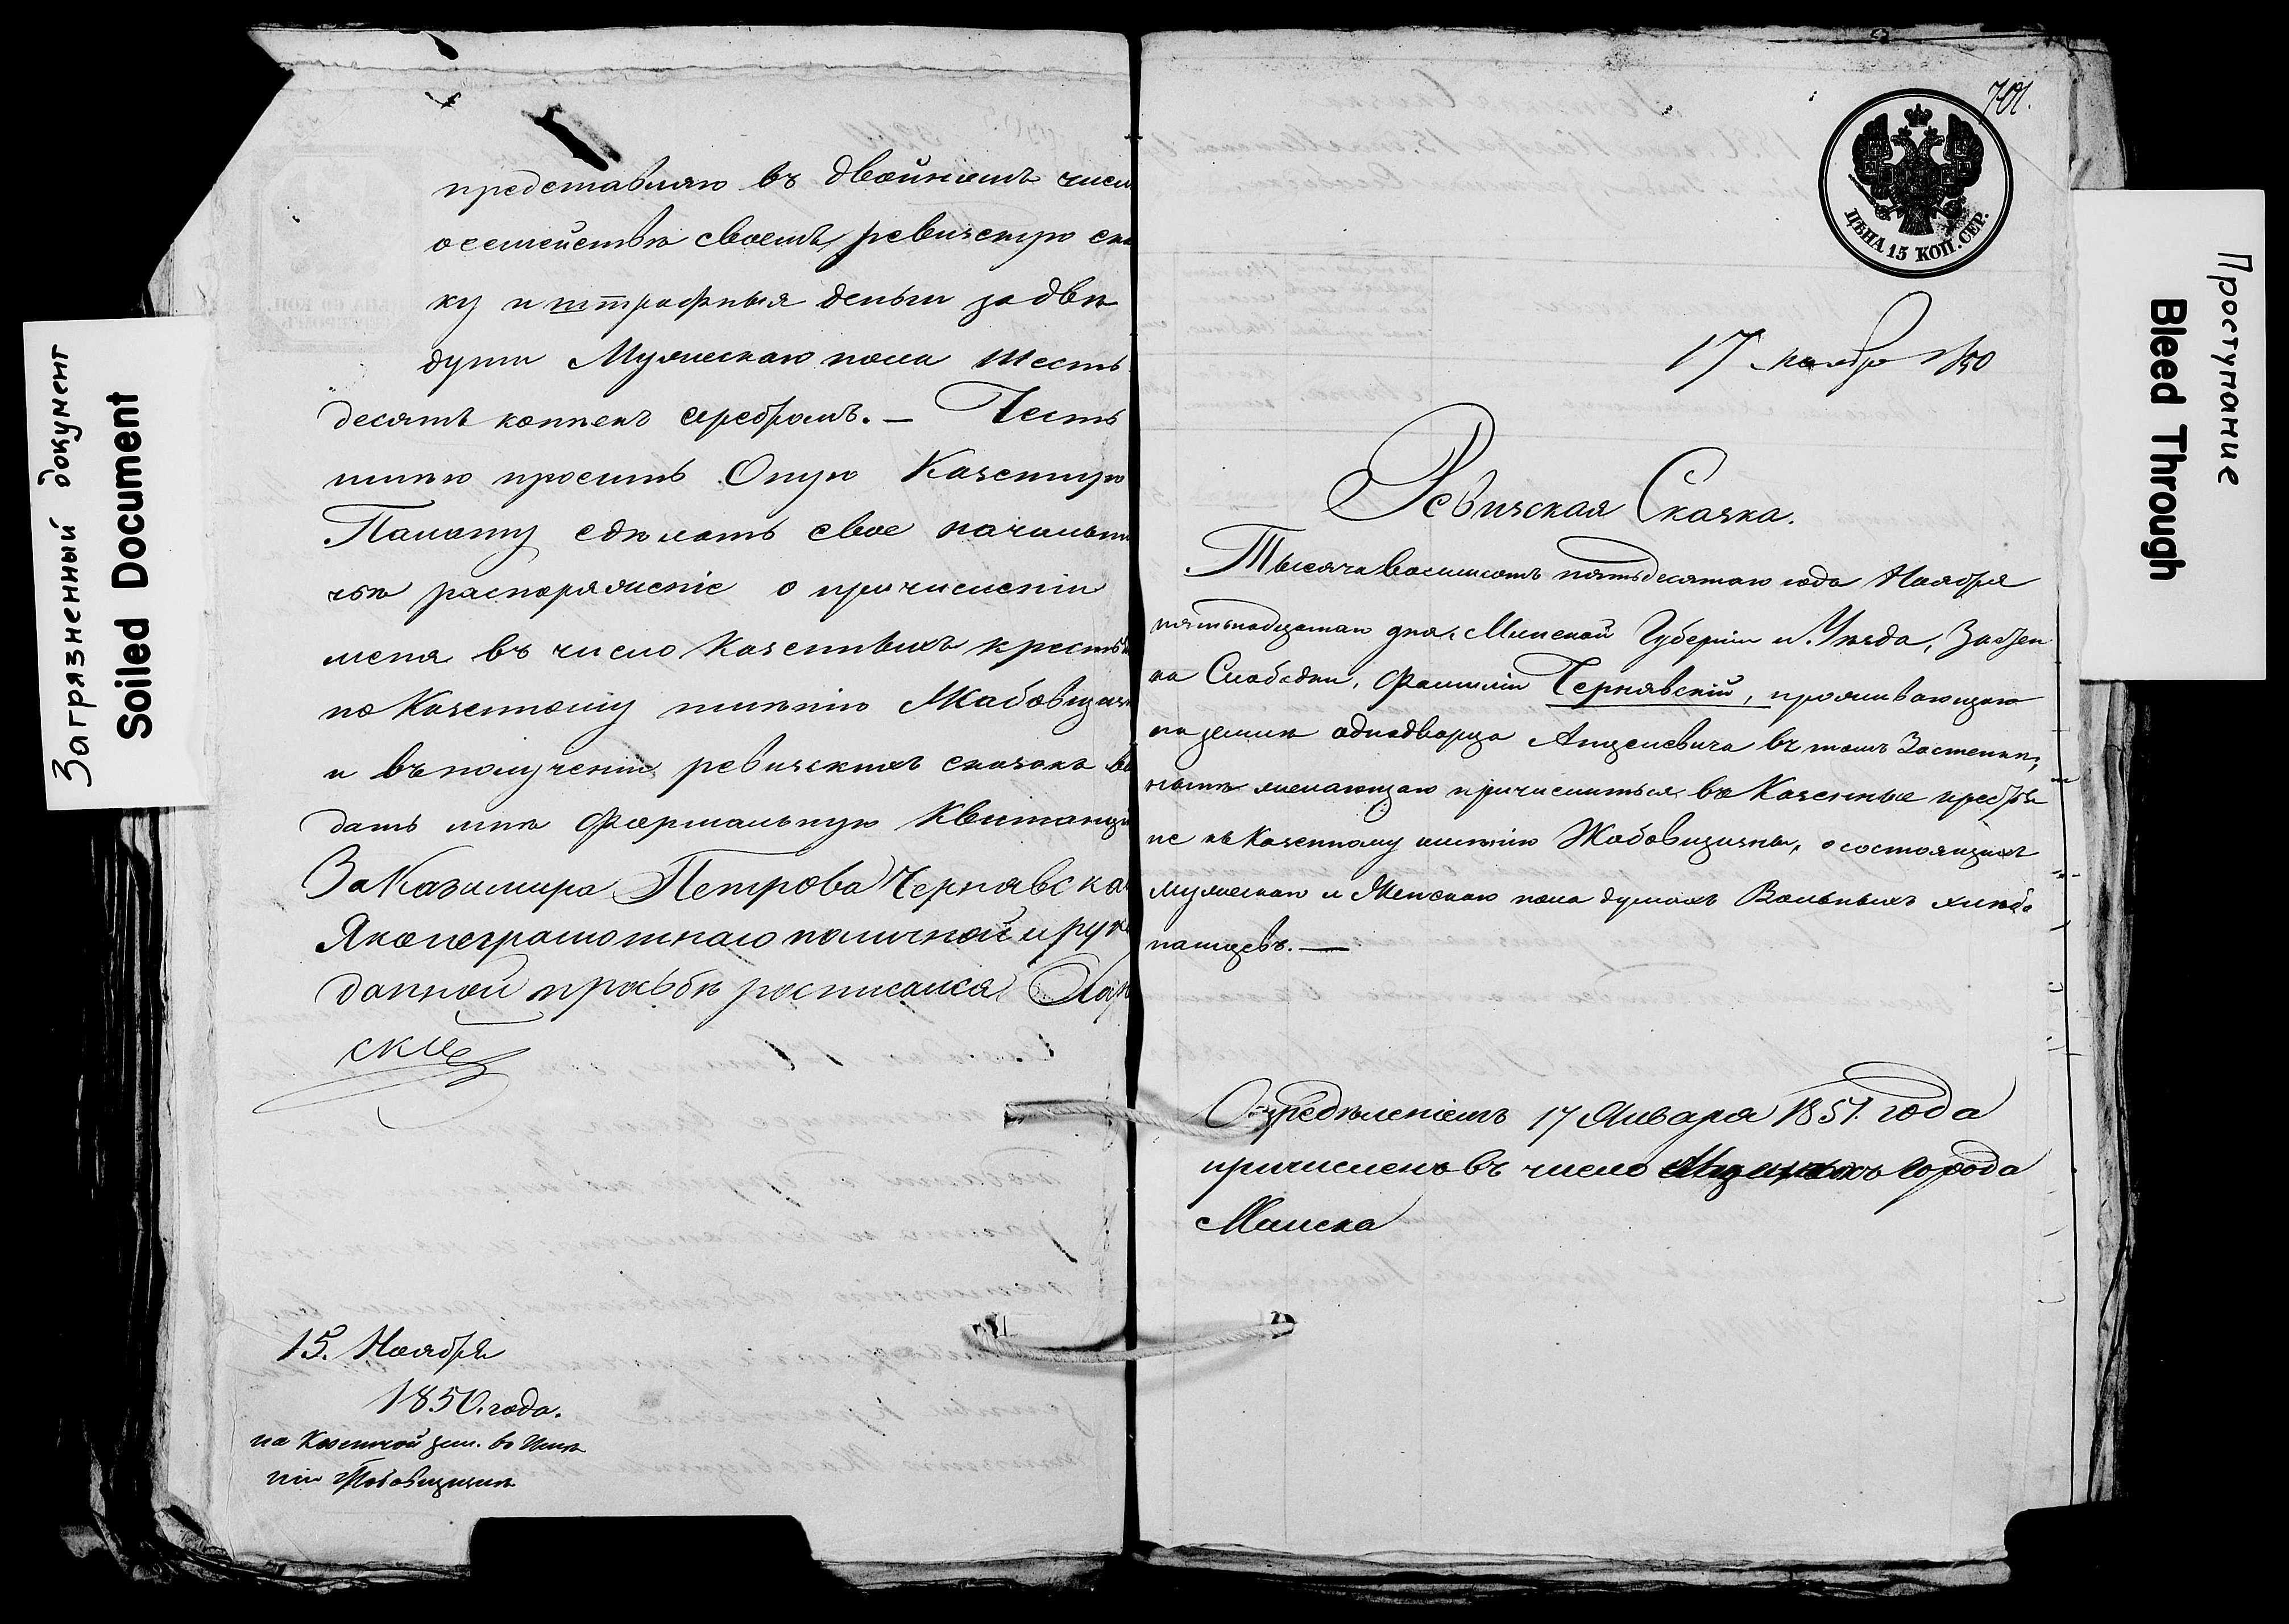 представляю въ двойномъ числ
о семействѣ своемъ ревизскую ска
ку и штрафныя деньги за двѣ
души Мужескаго пола шесть
десятъ копѣекъ серебромъ. — Честь
имѣю просить Оную Казенную
Палату сдѣлать свое начальни
чье распоряженіе о причисленіи
меня въ число Казенныхъ крестья
по Казенному имѣнію Жабовщизн
и въ полученіи ревизскихъ сказокъ вы
дать мнѣ формальную Квитанці
За Казимира Петрова Чернявска
Яко неграмотнаго по личной и рук
данной прозьбѣ росписался
ский
15. Ноября
1850. года.
на Казенной зем. въ Имѣ
ніи
701.
ЦѢНА 15 КОП. СЕР.
17 ноября 1850
Ревизская Сказка.
Тысяча восемьсотъ пятьдесятаго года Ноября
пятьнадцатаго дня, Минской Губерніи и Уѣзда, Застѣн
ка Слободки, Фамиліи Чернявскій, проживающаго
на землѣ однодворца Анцелевича въ томъ Застенкѣ,
нынѣ желающаго причислиться въ Казенные крестья
не къ Казенному имѣнію Жабовщизны, о состоящихъ
мужескаго и Женскаго пола душахъ Вольныхъ хлѣбо
пашцевъ. —
Опредѣленіемъ 17 Января 1851. года
причисленъ въ число Мѣщанъ города
Минска
Загрязненный документ
Soiled Document
Проступание
Bleed Through